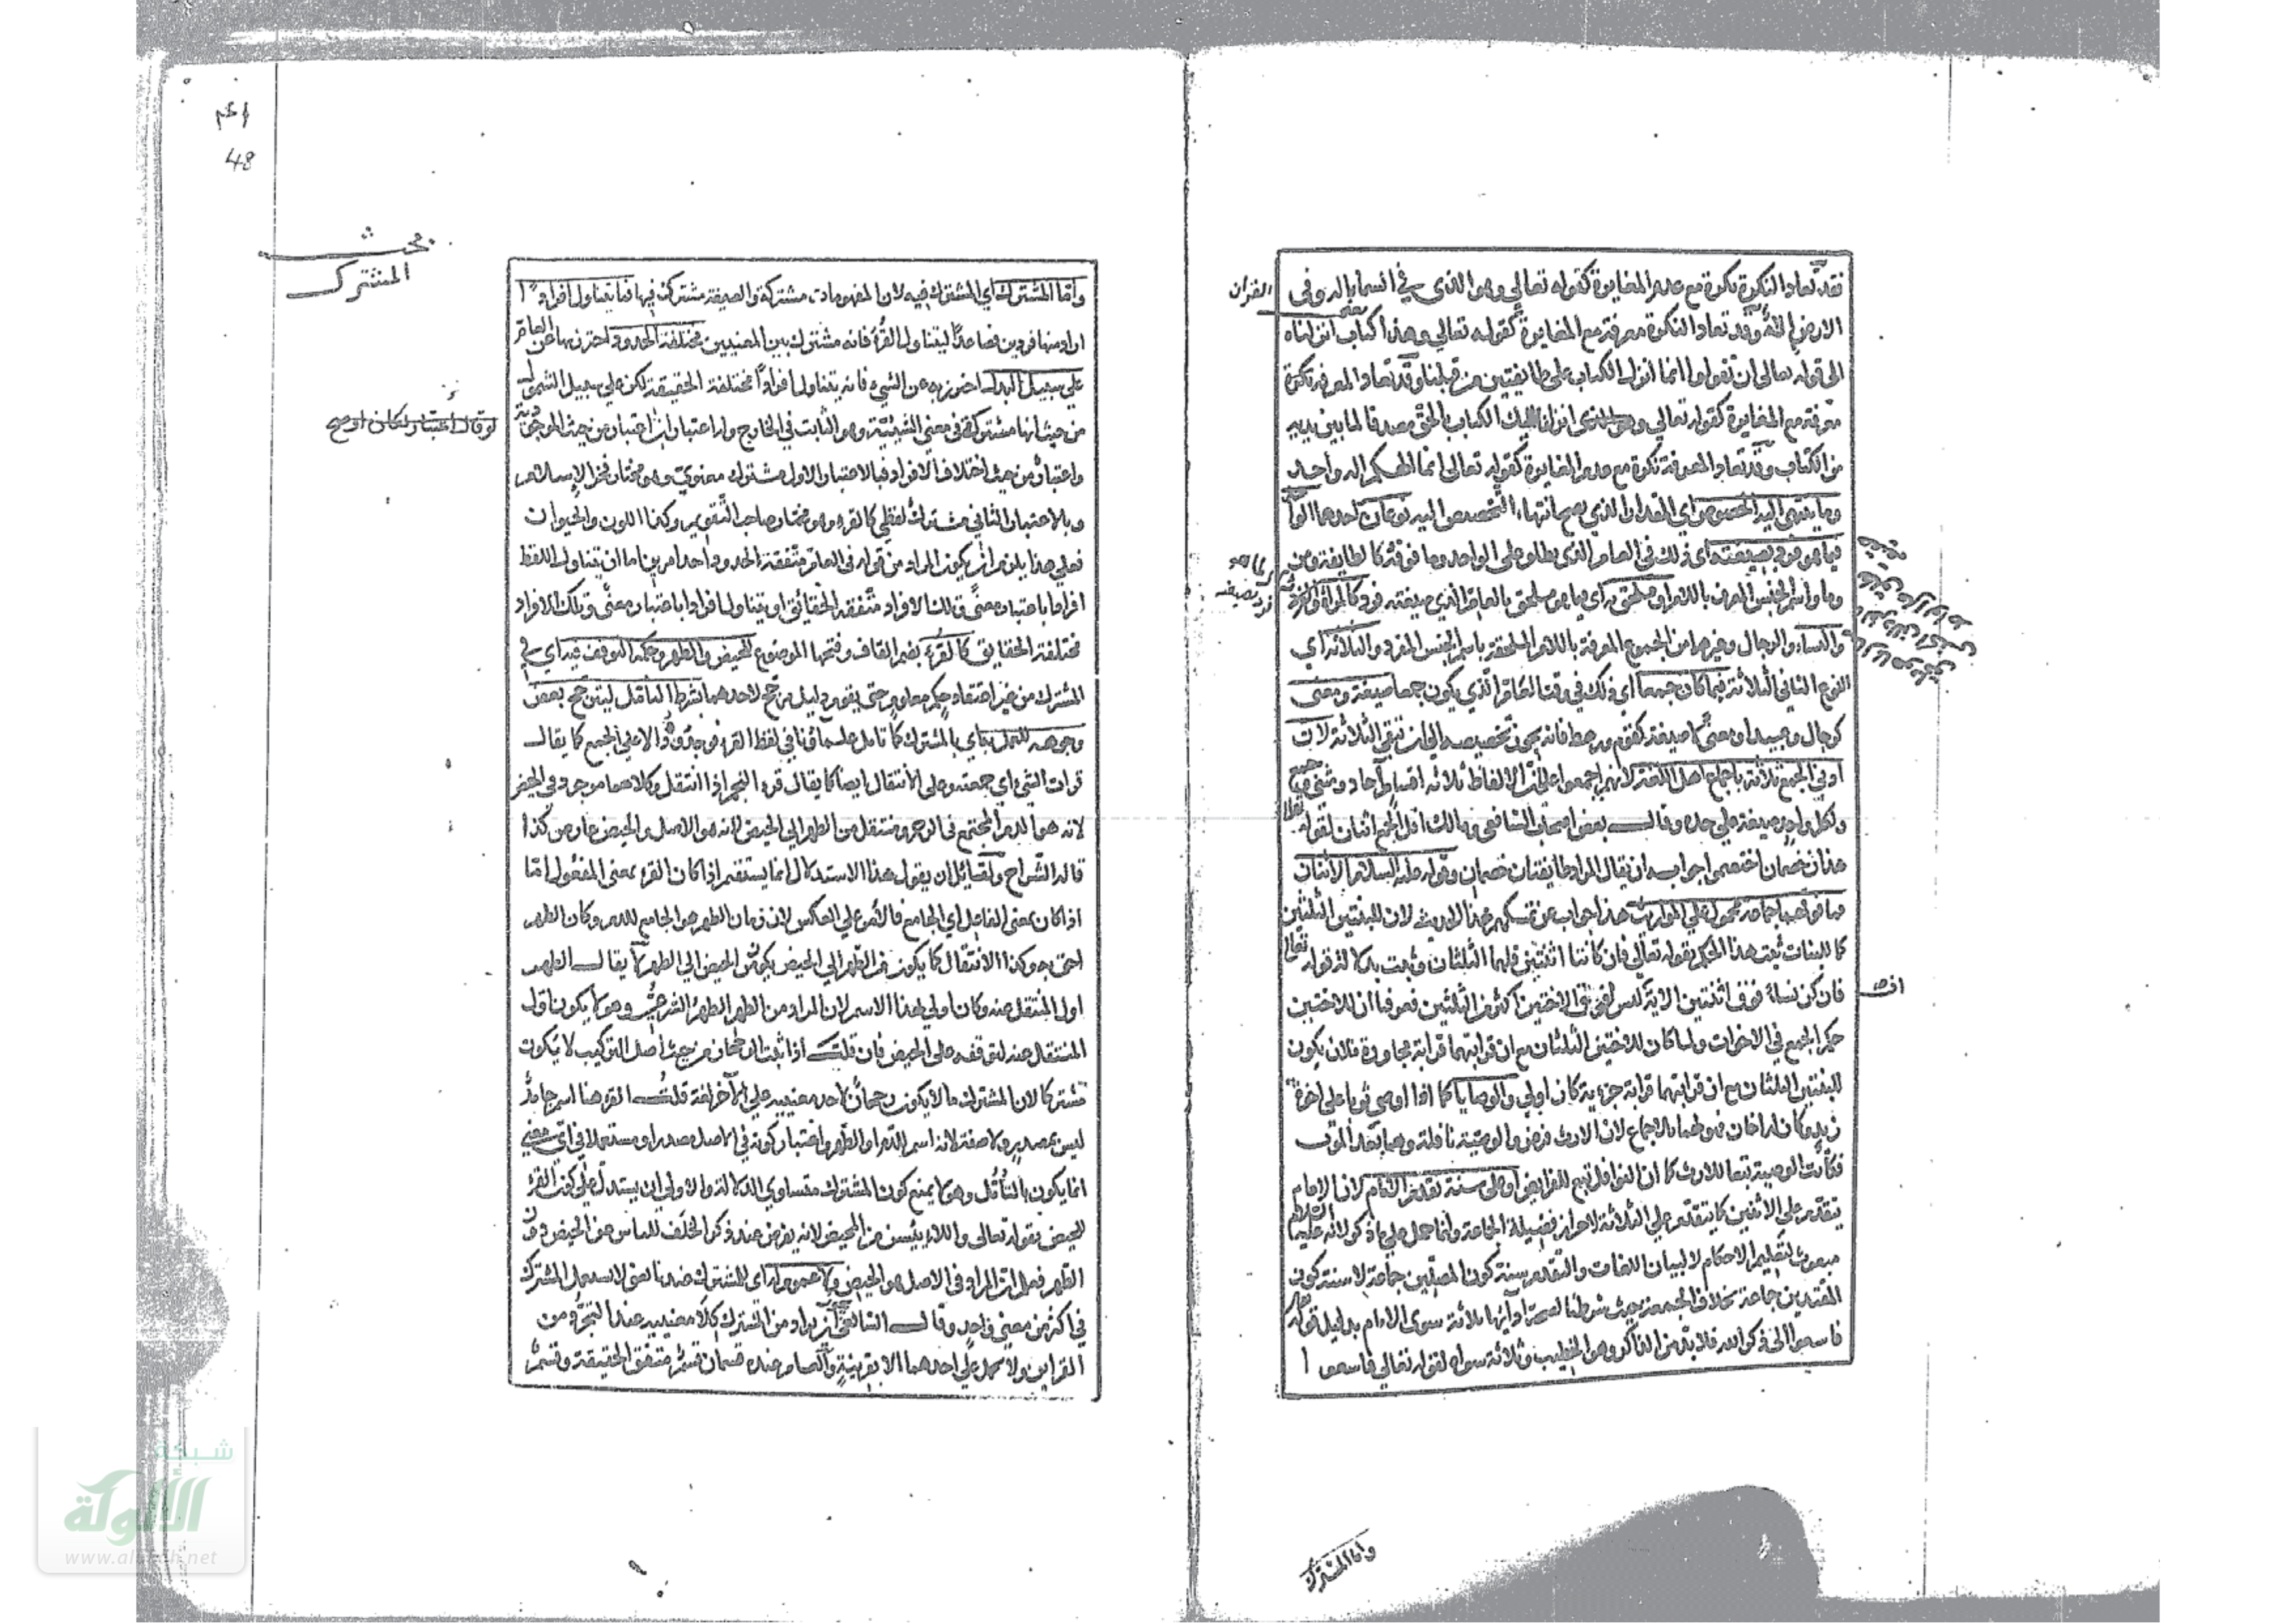 فقد تعاد النكرة نكرة مع عدم المغايرة كقوله تعالى وهو الذي في السما اله وفي
الارض اله وقد تعاد النكرة معرفة مع المغايرة كقوله تعالى وهذا كتاب انزلناه
الى قوله تعالى ان تقولوا انما انزل الكتاب على طايفتين من قبلنا وقد تعاد المعرفة نكرة
معرفة مع المغايرة كقوله تعالى وهو الذي انزل اليك الكتاب بالحق مصدقا لما بين يديه
من الكتاب وقد تعاد المعرفة نكرة مع عدم المغايرة كقوله تعالى انما الهكم اله واحد
وما ينتهي اليه الخصوص اي المقدار الذي يصح انتهاء التخصيص اليه نوعان احدهما الواحد
فيما هو فرد بصيغته اي ذلك في العام الذي يطلق على الواحد وما فوقه كالطايفة ومن
وما واسم الجنس المعرف باللام او ملحق به اي بما هو ملحق بالعام الذي صيغته فرد كالمراة
والنساء والرجال وغيرهما من الجموع المعرفة باللام الملحقة باسم الجنس المفرد والثلاثة اي
النوع الثاني الثلاثة فيما كان جمعا اي ذلك في وقت العام الذي يكون جمعا صيغة ومعنى
كرجال وعبيد او معنى لا صيغة كقوم ورهط فانه يجوز تخصيصه الى ان تبقى الثلاثة لان
ادنى الجمع ثلاثة باجماع اهل اللغة لانهم اجمعوا على ان الالفاظ ثلاثة اقسام آحاد ومثنى وجمع
ولكل واحد صيغة على حده وقال بعض اصحاب الشافعي ومالك اقل الجمع اثنان لقوله تعالى
هذان خصمان اختصموا جوابه ان يقال المراد طايفتان خصمان وقوله عليه السلام الاثنان
فما فوقهما جماعة محمول على المواريث هذا جواب عن تمسكهم بهذا الحديث لان للبنتين الثلثين
كما للبنات ثبت هذا الحكم بقوله تعالى فان كانتا اثنتين فلهما الثلثان وثبت بدلالة قوله تعالى
فان كن نساء فوق اثنتين الاية ليس لفوق الاختين اكثر من الثلثين فعرفنا ان للاختين
حكم الجمع في الاخوات ولما كان للاختين الثلثان مع ان قرابتهما قرابة مجاورة فلان يكون
للبنتين الثلثان مع ان قرابتهما قرابة جزءية كان اولى والوصايا كما اذا اوصى ثوبا على اخوة
زيد وكان له اخان فهو لهما بالاجماع لان الارث فرض والوصية نافلة وهما بعد الموت
فكانت الوصية تبعا للارث كما ان النوافل تبع للفرايض او على سنة تقدم الامام لان الامام
يتقدم على الاثنين كما يتقدم على الثلاثة لاحراز فضيلة الجماعة وانما حمل على ما ذكر لانه عليه السلام
مبعوث لتعليم الاحكام لا لبيان اللغات والتقدم سنة كون المصلين جماعة لا سنة كون
المقتدين جماعة بخلاف الجمعة حيث شرطنا لصحة ادآيها ثلاثة سوى الامام بدليل قوله تعالى
فاسعوا الى ذكر الله فلا بد من الذاكر وهو الخطيب وثلاثة سواه لقوله تعالى فاسعوا
القران
وانما المشترك
٤٨
48
مبحث
المشترك
واما المشترك اي المشترك فيه لان المفهومات مشتركة والصيغة مشترك فيها فما يتناول افرادا
اراد منها فردين فصاعدا ليتناول القرء فانه مشترك بين المعنيين مختلفة الحدود احترز بها عن العام
على سبيل البدل احترز به عن الشيء فانه يتناول افرادا مختلفة الحقيقة لكن على سبيل الشمول
من حيث انها مشتركة في معنى الشيئية وهو الثابت في الخارج وله اعتباران اعتبار من حيث الوجود
واعتبار من حيث اختلاف الافراد فبالاعتبار الاول مشترك معنوي وهو مختار فخر الاسلام
وبالاعتبار الثاني مشترك لفظي كالقرء وهو مختار صاحب التقويم وكذا اللون والحيوان
فعلى هذا يلزم ان يكون المراد من قوله في العام متفقة الحدود احد امرين اما ان يتناول اللفظ
افرادا باعتبار معنى وتلك الافراد متفقة الحقائق او يتناول افرادا باعتبار معنى وتلك الافراد
مختلفة الحقايق كالقرء بضم القاف وفتحها الموضوع للحيض والطهر وحكمه التوقف فيه اي في
المشترك من غير اعتقاد حكم معلوم حتى يقوم دليل مرجح لاحدهما بشرط التامل ليترجح بعض
وجوهه للعمل به اي بالمشترك كما تامل علماؤنا في لفظ القرء فوجدوه دالا على الجمع كما يقال
قرات الشيء اي جمعته وعلى الانتقال ايضا كما يقال قرء النجم اذا انتقل وكلاهما موجود في الحيض
لانه هو الدم المجتمع في الرحم ومنتقل من الطهر الى الحيض لانه هو الاصل والحيض عارض كذا
قاله الشراح ولقائل ان يقول هذا الاستدلال انما يستقيم اذا كان القرء بمعنى المفعول اما
اذا كان بمعنى الفاعل اي الجامع فالامر على العكس لان زمان الطهر هو الجامع للدم وكان الطهر
احق به وكذا الانتقال كما يكون من الطهر الى الحيض يكون من الحيض الى الطهر لا يقال الطهر
اول المنتقل عنه وكان اولى بهذا الاسم لان المراد من الطهر الطهر الشرعي وهو لا يكون اول
المنتقل عنه لتوقفه على الحيض فان قلت اذا ثبت الرجحان من حيث اصل التركيب لا يكون
مشتركا لان المشترك ما لا يكون رجحان لاحد معنييه على الآخر لغة قلت القرء هنا اسم جامد
ليس بمصدر ولا صفة لانه اسم للدم او الطهر واعتبار كونه في الاصل مصدرا ومستعملا في اي معنى
انما يكون بالتأمل وهو لا يمنع كون المشترك متساوي الدلالة والاولى ان يستدل على كون القرء
للحيض بقوله تعالى واللاء يئسن من المحيض لانه يفرض عند ذكر الخلف للماس عن الحيض دون
الطهر فعلم ان المراد في الاصل هو الحيض ولا عموم له اي للمشترك عندنا يعني لا يستعمل المشترك
في اكثر من معنى واحد وقال الشافعي يجوز ان يراد من المشترك كلا معنييه عند التجرد من
القراين ولا يحمل على احدهما الا بقرينة والعام عنده قسمان قسم متفق الحقيقة وقسم
شبكة
الألوكة
www.alukah.net